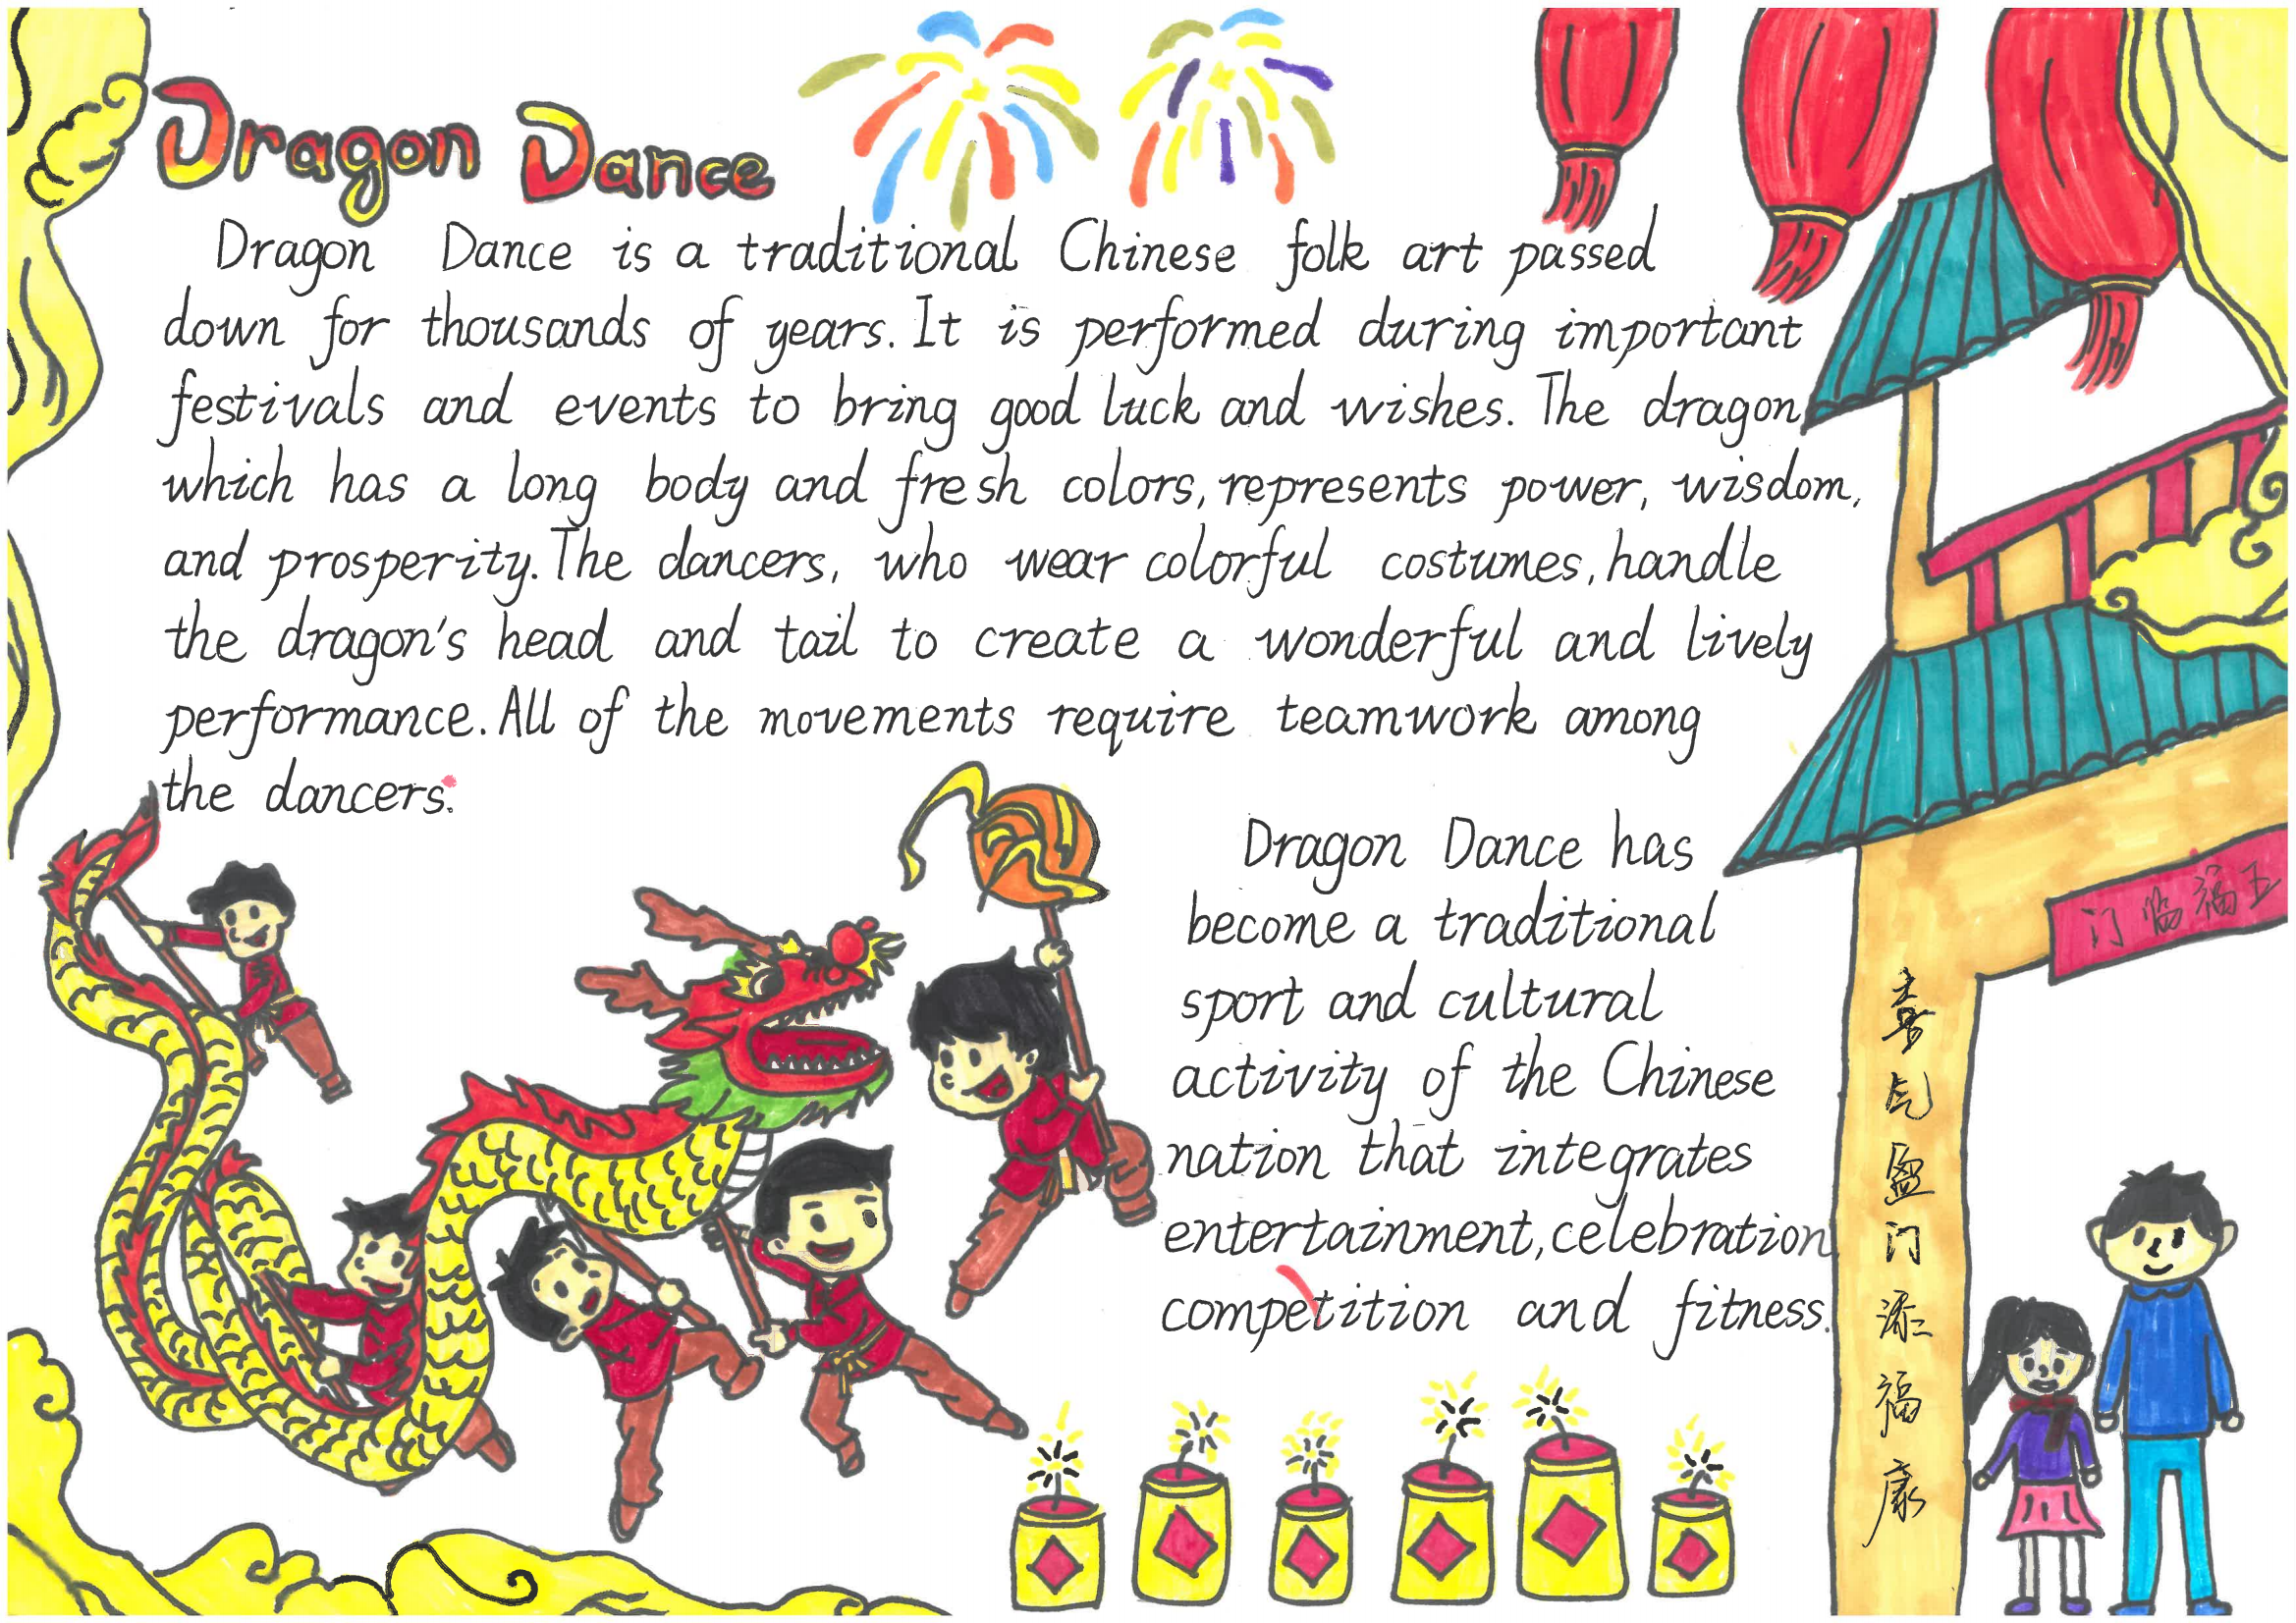 Dragon Dance
Dragon Dance is a traditional Chinese folk art passed
down for thousands of years. It is performed during important
festivals and events to bring good luck and wishes. The dragon
which has a long body and fresh colors, represents power, wisdom,
and prosperity. The dancers, who wear colorful costumes, handle
the dragon's head and tail to create a wonderful and lively
performance. All of the movements require teamwork among
the dancers.
Dragon Dance has
become a traditional
sport and cultural
activity of the Chinese
nation that integrates
entertainment, celebration
competition and fitness.
门临福五
喜
盈
门
添
福
康